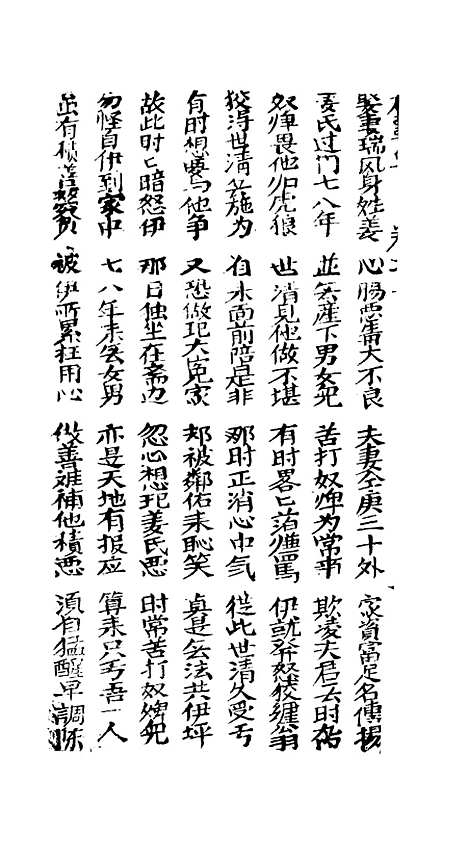 娶妻瑞风身姓姜 心腸悪毒大不良 夫妻仝庚三十外 家資富足名傳揚
姜氏过门七八年 並無產下男女児 苦打奴婢为常事 欺凌夫君去时
奴婢畏他如虎狼 世清見他做不堪 有时畧匕 伊就発怒 纏翁
世清無施为 自来面前陪是非 那时正消心中气 從此世清久受亏
有时想要与他争 又恐做犯大 家 却被鄰佑来恥笑 真是無法共伊坪
故此时匕暗怒伊 那日独坐在斋边 忽心想犯姜氏悪 时常苦打奴婢児
勿怪自伊到家中 七八年来無女男 亦是天地有报应 算来只亏吾一人
虽有積善 被伊所累枉用心 做善难補他積悪 須自猛醒早調